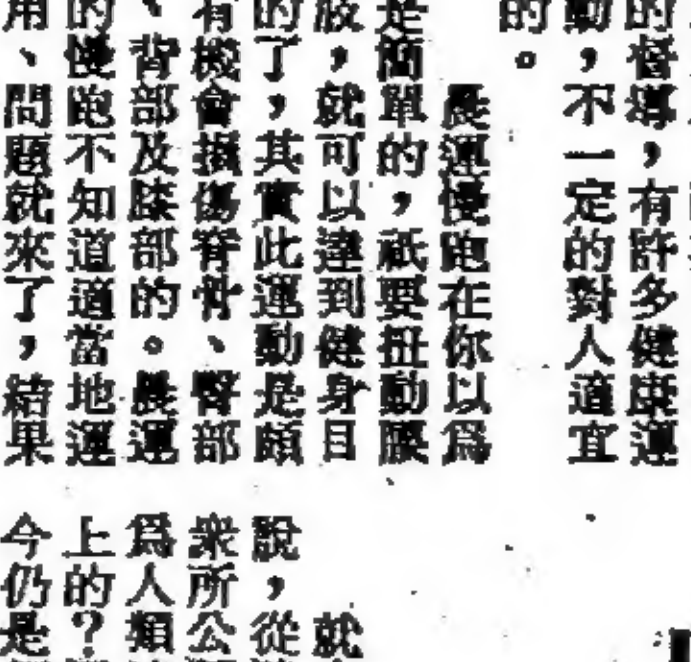 的督導，有許多健康運
動，不一定的對人適宜
的。
晨運慢跑在你以爲
是簡單的，祇要扭動腰
肢，就可以達到健身目
的了，其實此運動是頗
有機會損傷脊骨、臀部
、背部及膝部的。晨運
的慢跑不知道適當地運
用、問題就來了，結果
就
說，從
衆所公
爲人類
上的？
今仍是